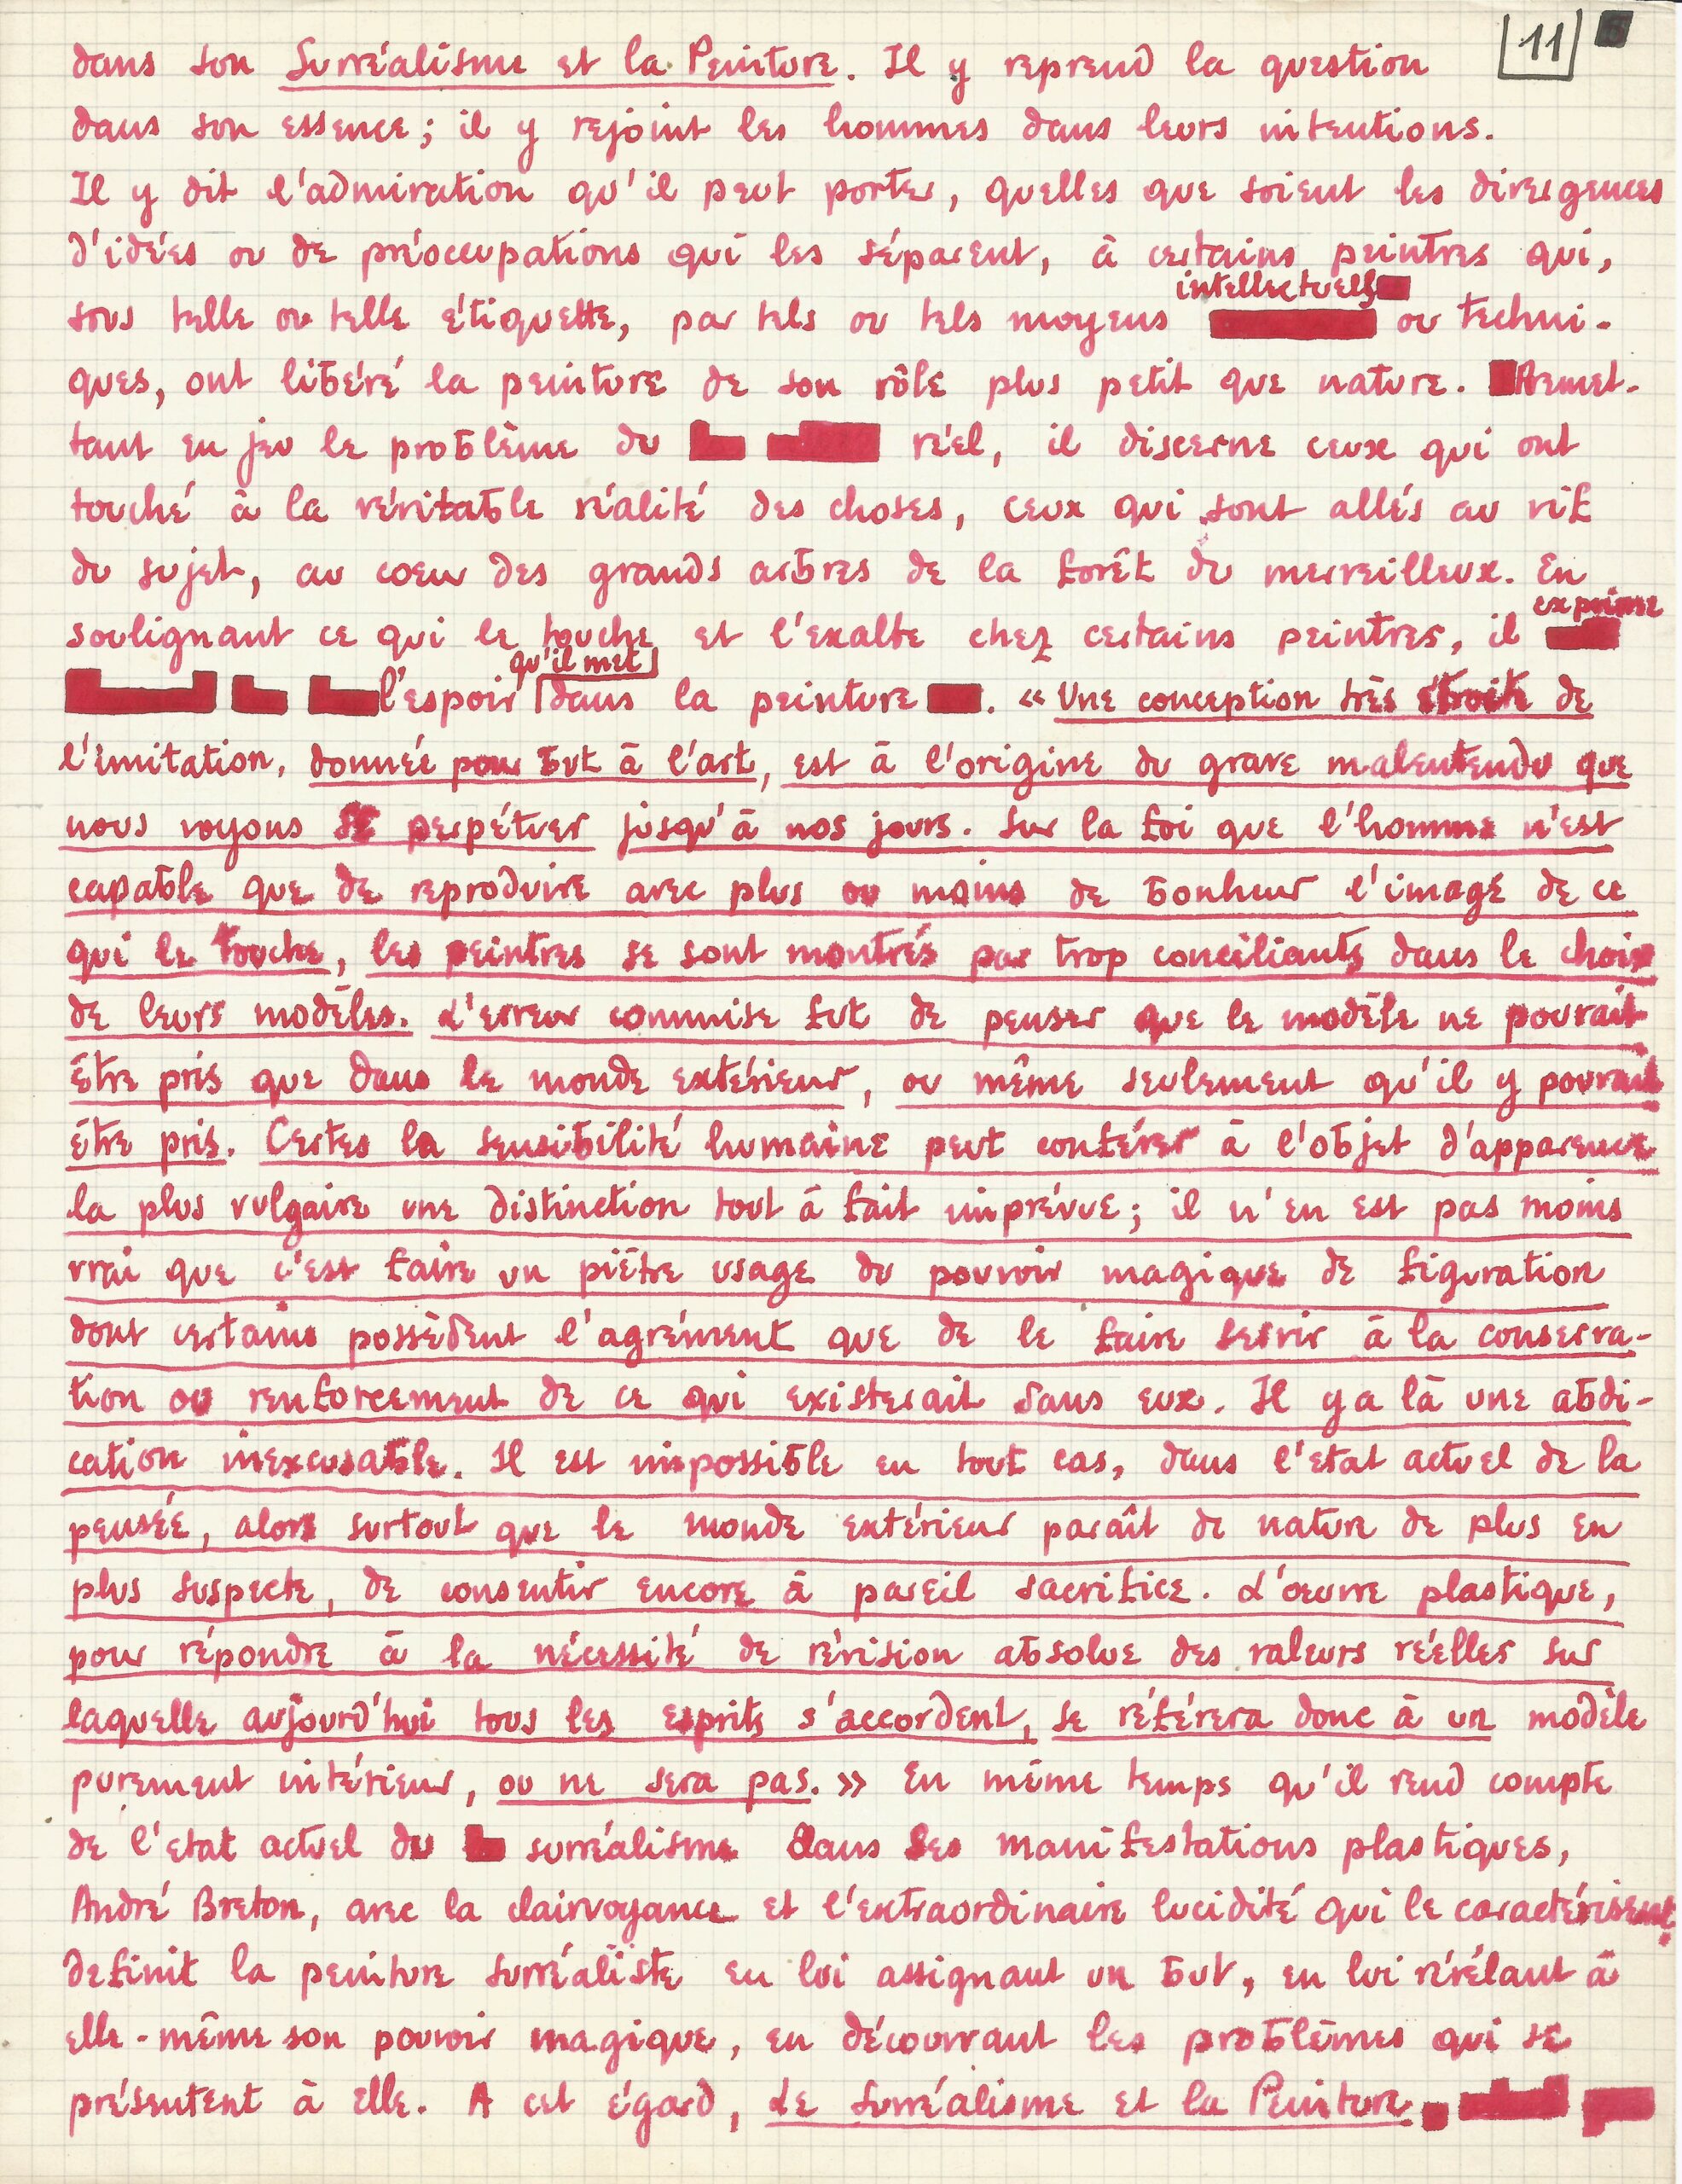 11
dans son Surréalisme et la Peinture. Il y reprend la question
dans son essence; il y rejoint les hommes dans leurs intentions.
Il y dit l'admiration qu'il peut porter, quelles que soient les divergences
d'idées ou de préoccupations qui les séparent, à certains peintres qui,
intellectuels
sous telle ou telle étiquette, par tels ou tels moyens ou techni-
ques, ont libéré la peinture de son rôle plus petit que nature. Remet-
tant en jeu le problème du réel, il discerne ceux qui ont
touché à la véritable réalité des choses, ceux qui sont allés au vif
du sujet, au cœur des grands arbres de la forêt du merveilleux. En
exprime
soulignant ce qui le touche et l'exalte chez certains peintres, il
qu'il met
l'espoir dans la peinture. « Une conception très étroite de
l'imitation, donnée pour but à l'art, est à l'origine du grave malentendu que
nous voyons se perpétuer jusqu'à nos jours. Sur la foi que l'homme n'est
capable que de reproduire avec plus ou moins de bonheur l'image de ce
qui le touche, les peintres se sont montrés par trop conciliants dans le choix
de leurs modèles. L'erreur commise fut de penser que le modèle ne pouvait
être pris que dans le monde extérieur, ou même seulement qu'il y pouvait
être pris. Certes la sensibilité humaine peut conférer à l'objet d'apparence
la plus vulgaire une distinction tout à fait imprévue; il n'en est pas moins
vrai que c'est faire un piètre usage du pouvoir magique de figuration
dont certains possèdent l'agrément que de le faire servir à la conserva-
tion ou renforcement de ce qui existerait sans eux. Il y a là une abdi-
cation inexcusable. Il est impossible en tout cas, dans l'etat actuel de la
pensée, alors surtout que le monde extérieur paraît de nature de plus en
plus suspecte, de consentir encore à pareil sacrifice. L'œuvre plastique,
pour répondre à la nécessité de révision absolue des valeurs réelles sur
laquelle aujourd'hui tous les esprits s'accordent, se référera donc à un modèle
purement intérieur, ou ne sera pas. » En même temps qu'il rend compte
de l'etat actuel du surréalisme dans ses manifestations plastiques,
André Breton, avec la clairvoyance et l'extraordinaire lucidité qui le caractérisent,
definit la peinture surréaliste en lui assignant un but, en lui révélant à
elle-même son pouvoir magique, en découvrant les problèmes qui se
présentent à elle. A cet égard, Le Surréalisme et la Peinture